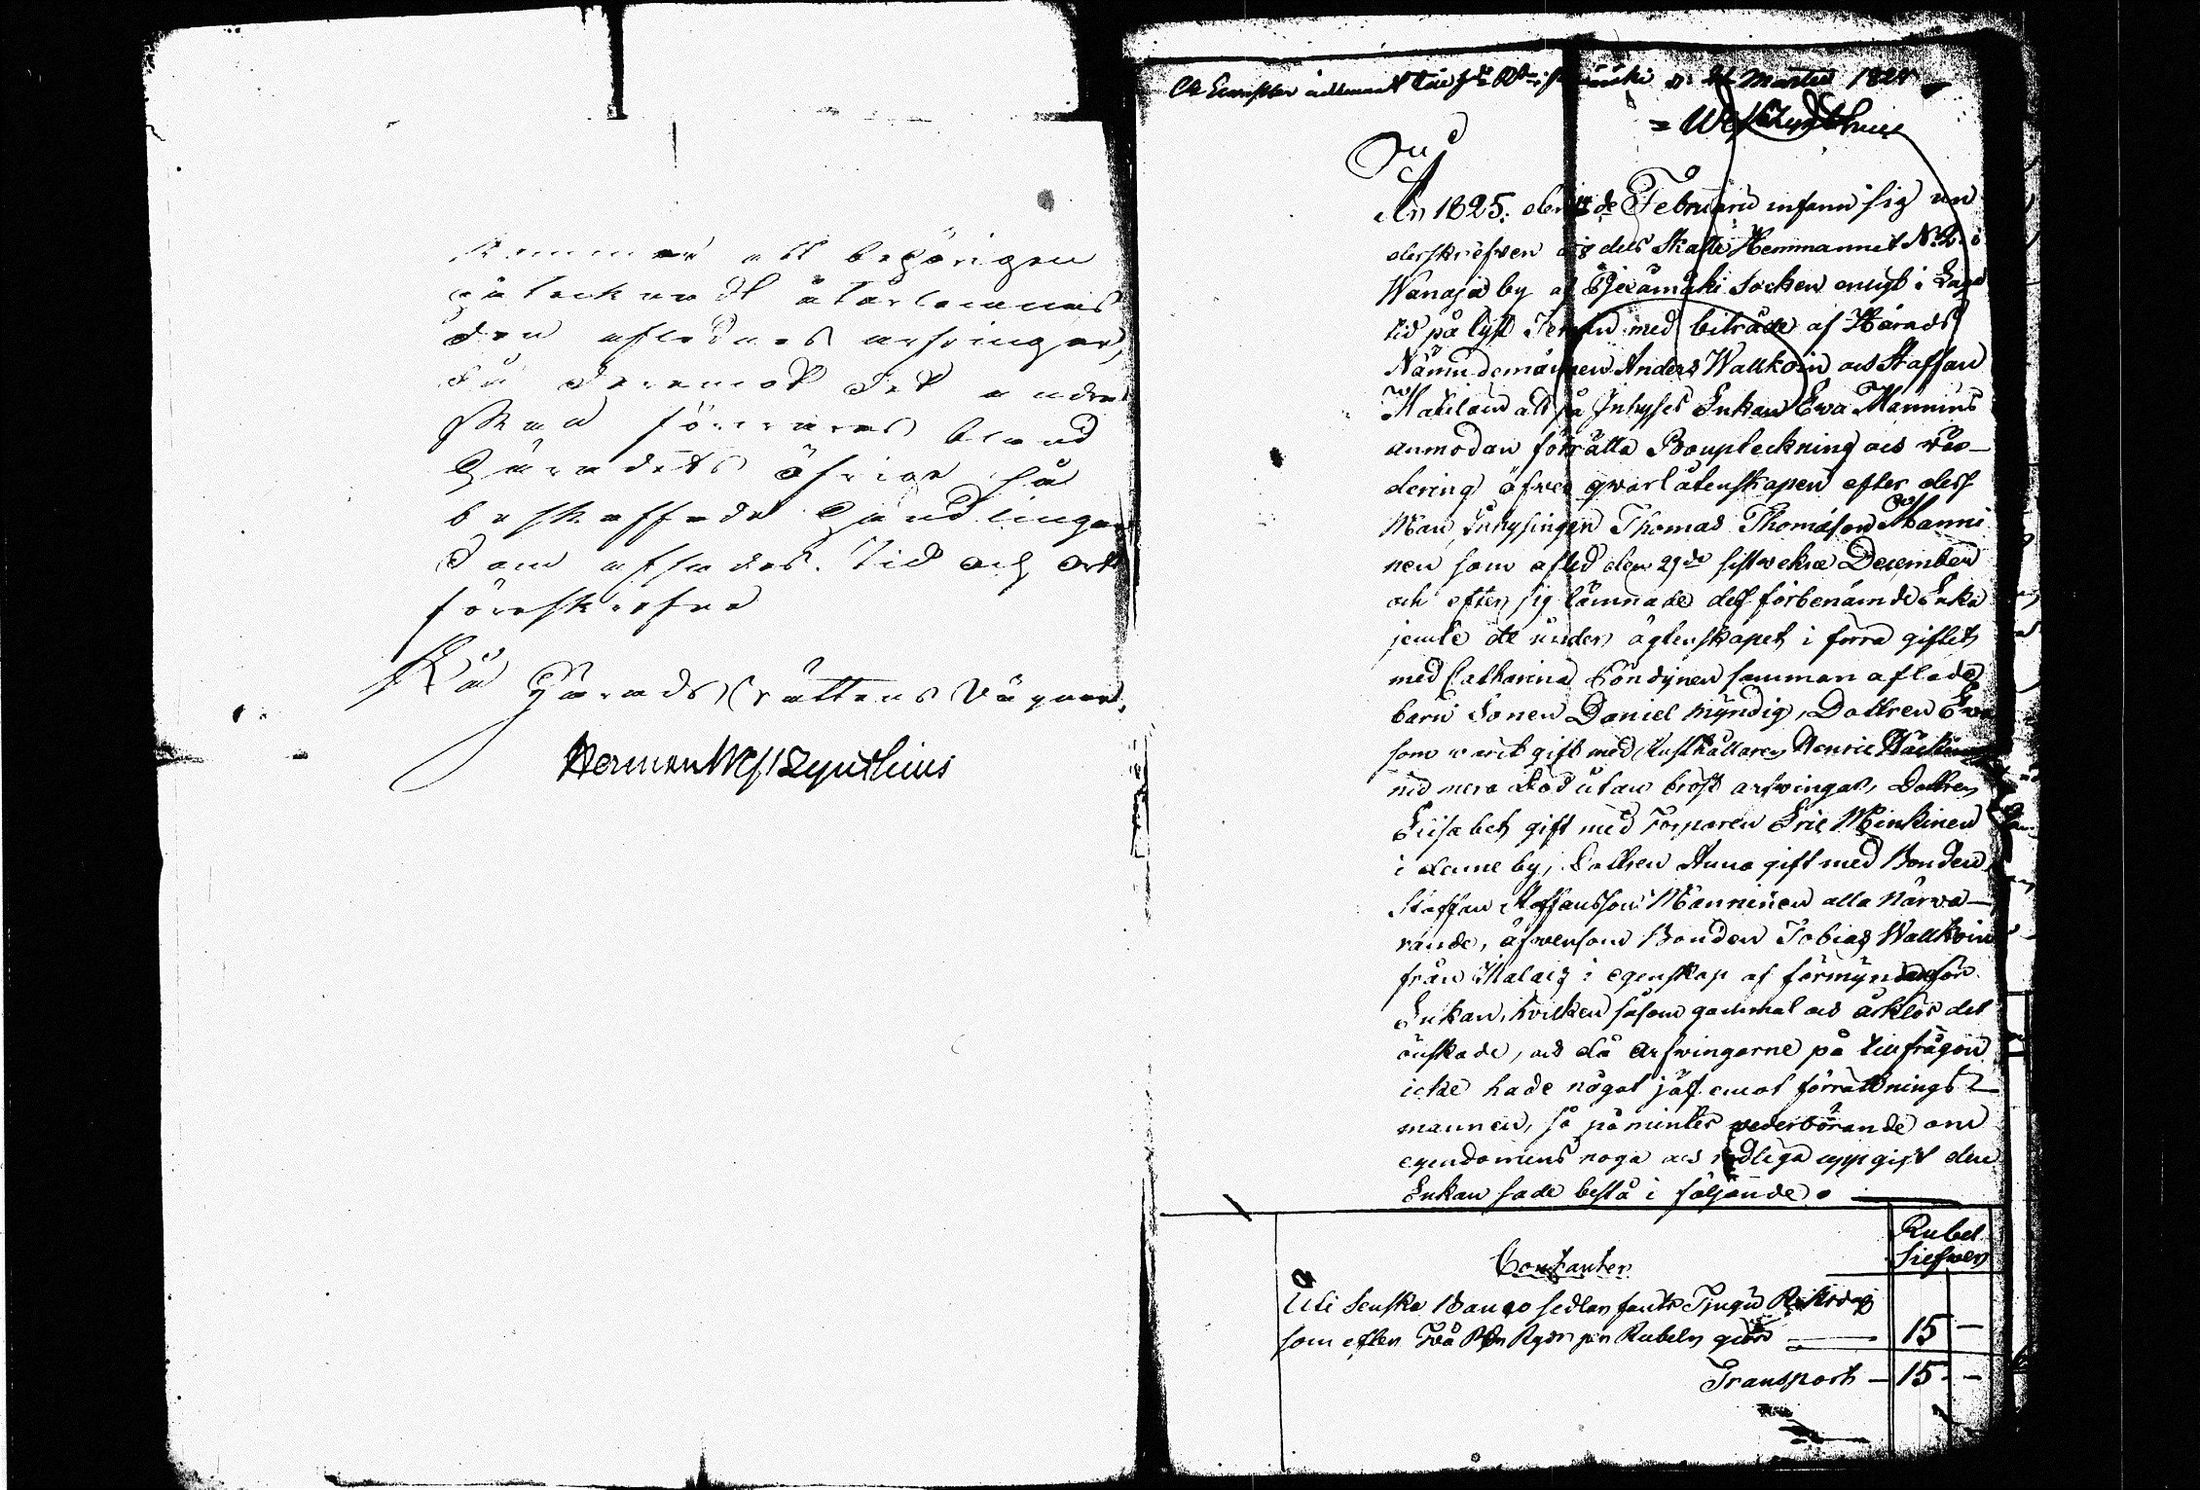 kommer att behörigen
påtecknadt återlemnas
den aflednes arfvingar,
då deremot det andra
skall förvaras bland
Häradets öfrige så
beskaffade Handlingar
Som afsades. Tid och Ort
föreskrefne
På Härads Rättens Vägnar.
Herman Wefs
1825
År 1825. den de Februarii infann sig un
derskrefven å dess Skatte Hemmannet N:o 2 i
Wanaja by af Socken enligt i Laga
tid på lyst Termin med biträde af Härads
Nämndemännen Anders Wallkoin och Staffan
att på Inhyses Enkan Ewa Männins
anmodan förrätta Bouptekning och vär-
dering öfver qvarlåtenskapen efter dess
Man, Inhysingen Thomas Thomasson Manni
nen som afled den 29de sistvekne December
och efter sig lämnade dess förbenämnde Enka
jemte de under ägtenskapet i förra giftet
med Catharina Pöndynen samman aflade
barn Sonen Daniel myndig, Dottren Ewa
som varit gift med Rusthållaren Henric
nu mera död utan bröst arfvingar, Dottren
Elisabeth gift med Torparen Eric Minkinen
i denne by, Dottren Anna gift med Bonden
Staffan Staffansson Manninen alla närva-
rande, äfvensom Bonden Tobias Wallkoin
från i egenskap af förmyndare för
Enkan, hvilken såsom gammal och det
önskade, och då Arfvingarne på tillfrågan
icke hade något jäf emot förrättnings-
mannen, så påmintes vederbörande om
egendomens noga och redliga uppgift den
Enkan sade bestå i följande.
Rubel
Silfver
Contanter
Uti Svenska Banco sedlar fants Tjugu Riksdaler
som efter Två Rgdr pr Rubeln giör 15 —
Transport — 15 —